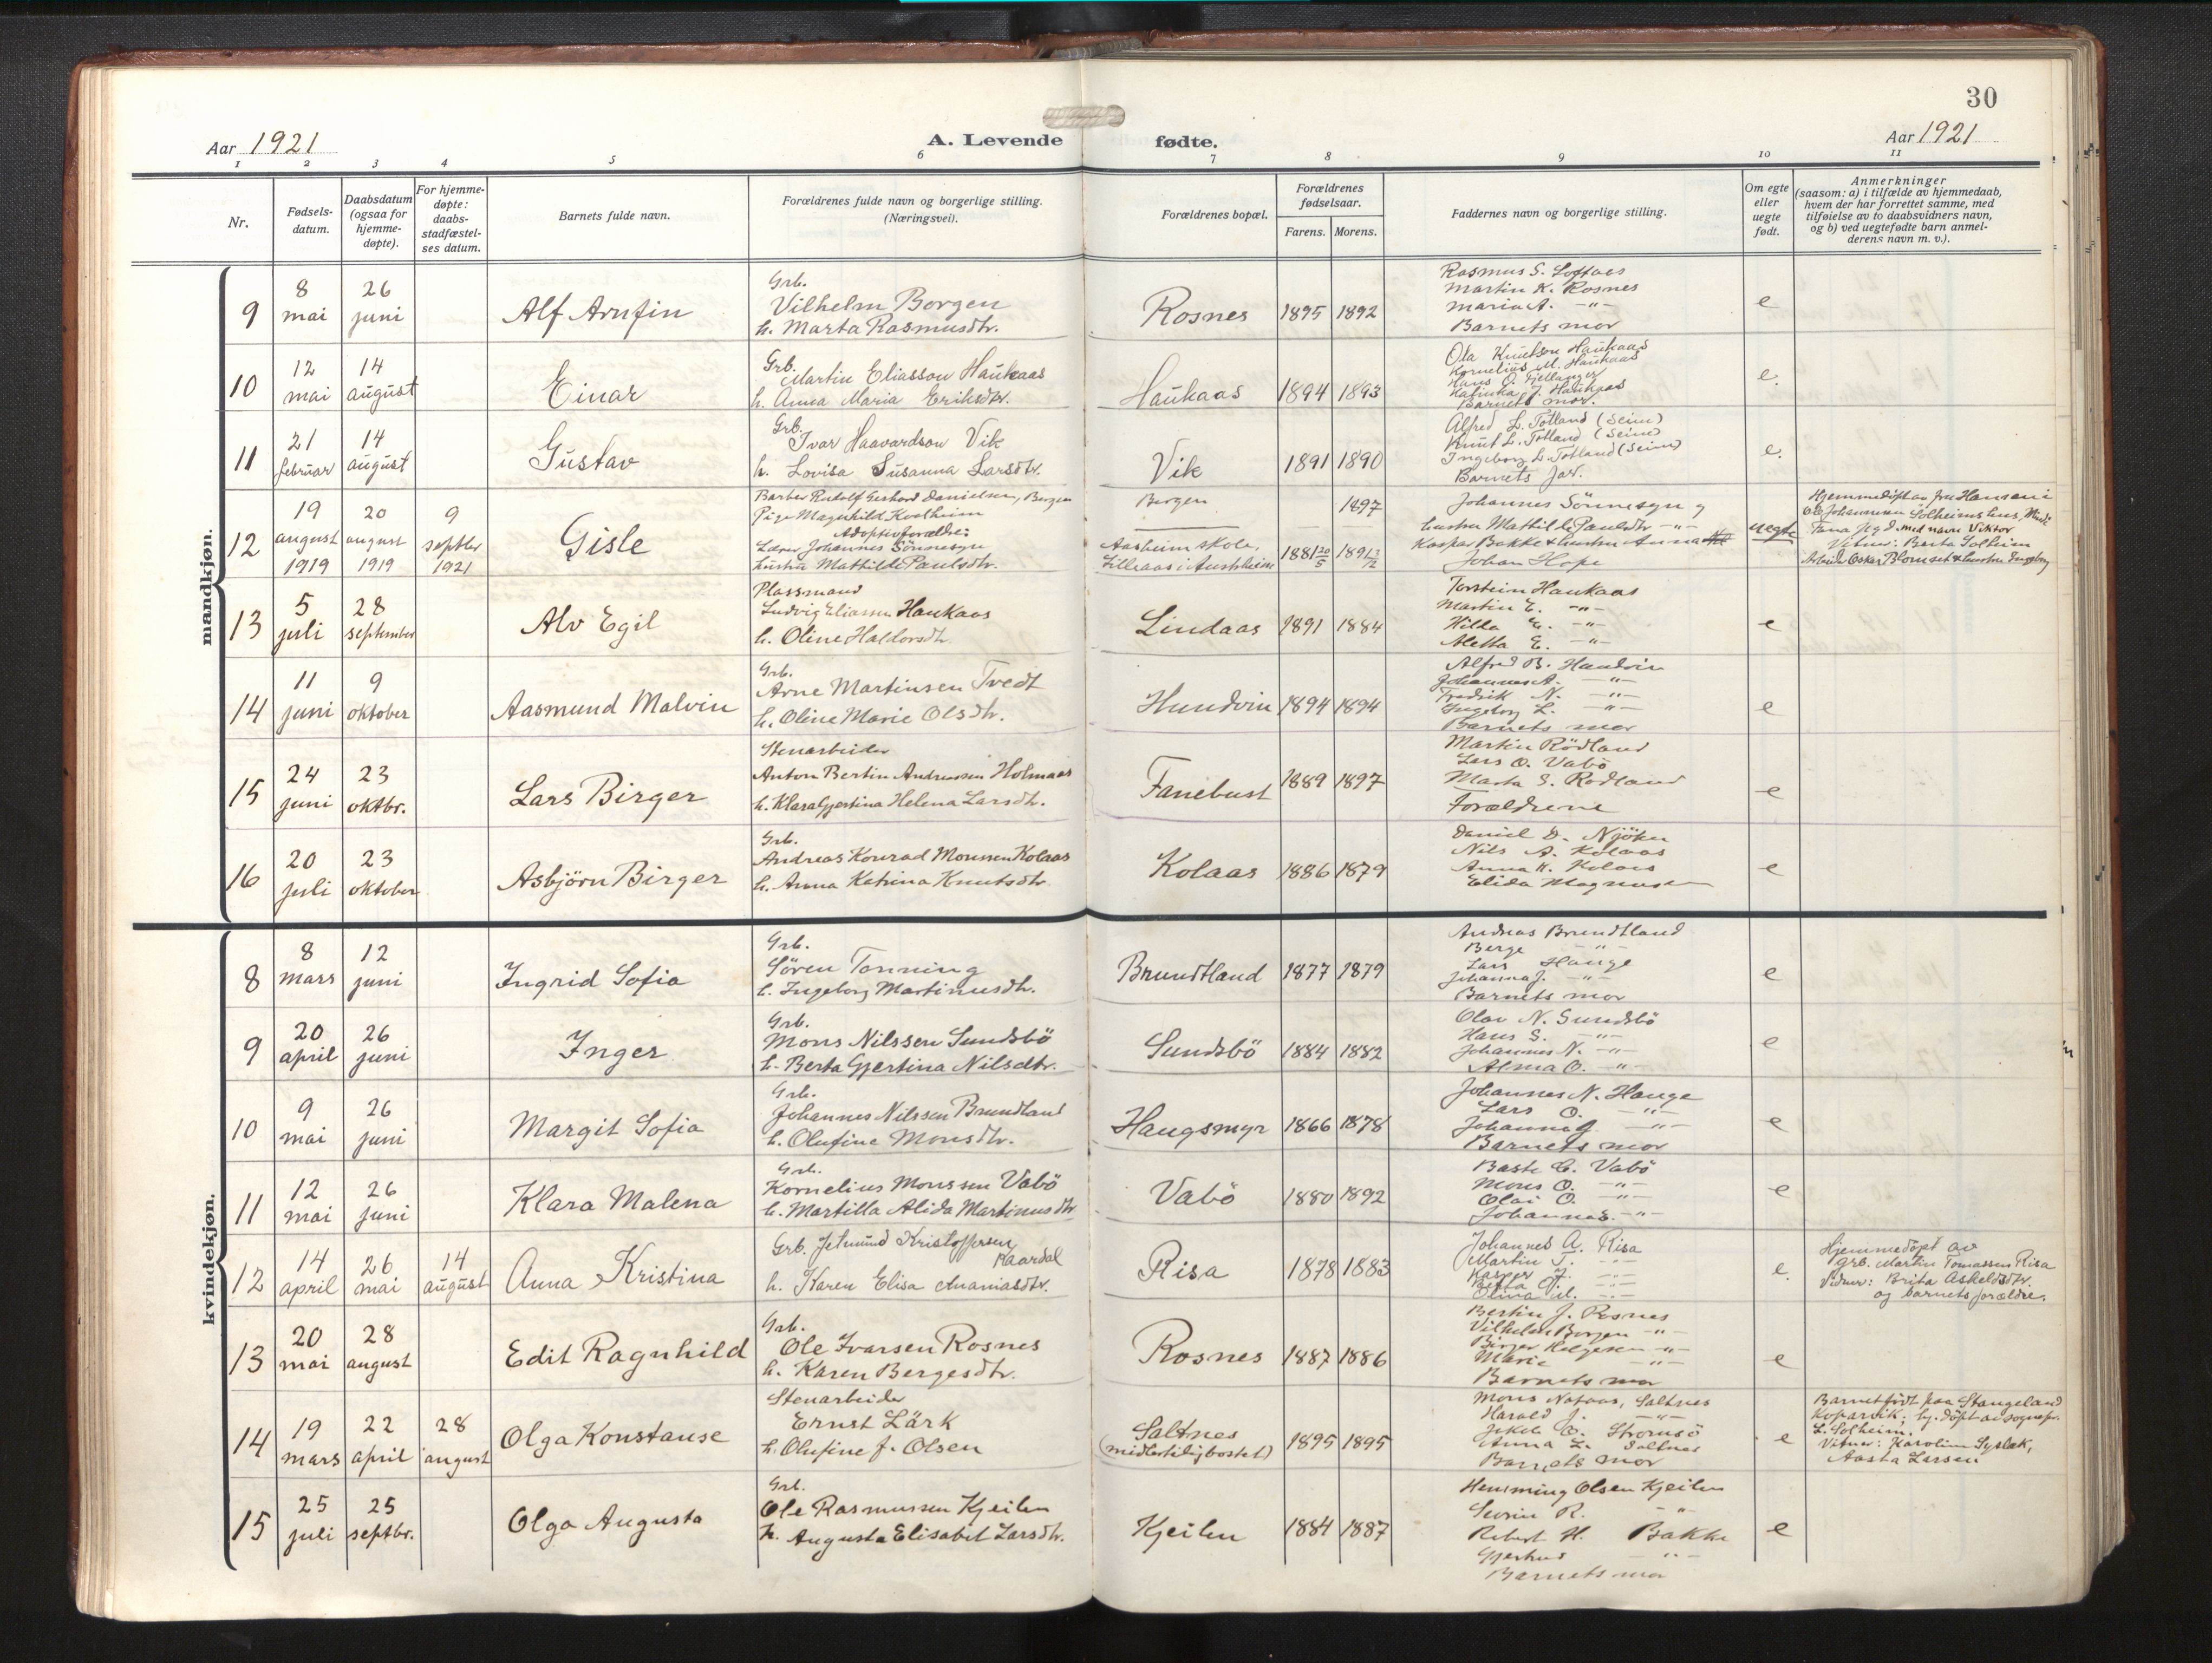 30
Aar 1921
A. Levende fødte.
Aar 1921
1 2 3 4 5 6 7 8 9 10 11
Nr.
Fødsels-
datum.
Daabsdatum
(ogsaa for
hjemme-
døpte).
For hjemme-
døpte:
daabs-
stadfæstel-
ses datum.
Barnets fulde navn.
Forældrenes fulde navn og borgerlige stilling.
(Næringsvei).
Forældrenes bopæl.
Forældrenes
fødselsaar.
Farens. Morens.
Faddernes navn og borgerlige stilling.
Om egte
eller
uegte
født.
Anmerkninger
(saasom: a) i tilfælde av hjemmedaab,
hvem der har forrettet samme, med
tilføielse av to daabsvidners navn,
og b) ved uegtefødte barn anmel-
derens navn m. v.).
mandkjøn.
9
8 mai
26 juni
Alf Arnfin
Grb.
Vilhelm Borgen
h. Marta Rasmusdtr.
Rosnes
1895 1892
Rasmus S. Loftaas
Martin K. Rosnes
Maria A. -"-
Barnets mor
e
10
12 mai
14 august
Einar
Grb.
Martin Eliasson Haukaas
h. Anna Maria Eriksdtr.
Haukaas
1894 1893
Ola Knutson Haukaas
Kornelius M. Haukaas
Hans O. Fjellanger
Katinka J. Haukaas
Barnets mor.
e.
11
21 februar
14 august
Gustav
Grb.
Ivar Haavardson Vik
h. Lovisa Susanna Larsdtr.
Vik
1891 1890
Alfred L. Totland (Seim)
Knut L. Totland (Seim)
Ingeborg L. Totland (Seim)
Barnets far.
e.
12
19 august 1919
20 august 1919
9 septbr 1921
Gisle
Barber Rudolf Gerhard Danielsen, Bergen
Pige Magnhild Kvalheim
Adoptivforældre:
Lærer Johannes Sönnesyn
hustru Mathilde Paulsdtr.
Bergen
Aasheim skole,
Lilleaas i Austrheim
1897
1881 20/5 1891 2/2
Johannes Sönnesyn og
hustru Mathilde Paulsdtr -"-
Kaspar Bakke & hustru Anna
Johan Hope
uegte
Hjemmedöpt av fru Hansen i
Johannesen Solheims hus,
med navn Viktor
Vitner: Berta Solheim
Oskar Blomset & hustru Ingeborg
13
5 juli
28 september
Alv Egil
Plassmand
Ludvig Eliassen Haukaas
h. Oline Haldorsdtr.
Lindaas
1891 1884
Torstein Haukaas
Martin E. -"-
Hilda E. -"-
Aletta E. -"-
e
14
11 juni
9 oktober
Aasmund Malvin
Grb.
Arne Martinsen Tvedt
h. Oline Marie Olsdtr.
Hundvin
1894 1894
Alfred B. Hundvin
Johannes A. -"-
Fredrik N. -"-
Ingeborg L. -"-
Barnets mor
e
15
24 juni
23 oktbr.
Lars Birger
Stenarbeider
Anton Bertin Andreassen Holmaas
h. Klara Gjertina Helena Larsdtr.
Fanebust
1889 1897
Martin Rödland
Lars O. Vabö
Marta S. Rödland
Forældrene
e
16
20 juli
23 oktober
Asbjörn Birger
Grb.
Andreas Konrad Monssen Kolaas
h. Anna Katrina Knutsdtr.
Kolaas
1886 1879
Daniel D. Njöten
Nils A. Kolaas
Anna K. Kolaas
Elida Magnusen
e
kvindekjøn.
8
8 mars
12 juni
Ingrid Sofia
Grb.
Sören Tonning
h. Ingeborg Martinusdtr.
Brundtland
1877 1879
Andreas Brundtland
Berge -"-
Lars Hauge
Johanna J. -"-
Barnets mor
e
9
20 april
26 juni
Inger
Grb.
Mons Nilssen Sundsbö
h. Berta Gjertina Nilsdtr.
Sundsbö
1884 1882
Olav N. Sundsbö
Hans S. -"-
Johannes N. -"-
Alma O. -"-
e
10
9 mai
26 juni
Margit Sofia
Grb.
Johannes Nilssen Brundtland
h. Olufine Monsdtr.
Haugsmyr
1866 1878
Johannes N. Hauge
Lars O. -"-
Johanna J. -"-
Barnets mor
e
11
12 mai
26 juni
Klara Malena
Grb.
Kornelius Monssen Vabö
h. Martilla Alida Martinusdtr
Vabö
1880 1892
Baste C. Vabö
Mons O. -"-
Olai O. -"-
Johanna S. -"-
e
12
14 april
26 mai
14 august
Anna Kristina
Grb. Jetmund Kristoffersen
Maardal
h. Karen Elisa Ananiasdtr.
Risa
1878 1883
Johannes A. Risa
Martin T. -"-
Kasper J. -"-
Berta O. -"-
Olina M. -"-
e.
Hjemmedöpt av
grb. Martin Tomassen Risa
Vidner: Brita Askeldsdtr.
og barnets forældre.
13
20 mai
28 august
Edit Ragnhild
Grb.
Ole Ivarsen Rosnes
h. Karen Bergesdtr.
Rosnes
1887 1886
Bertin J. Rosnes
Vilhelm Borgen -"-
Birger Helgesen -"-
Marie -"-
Barnets mor
e
14
19 mars
22 april
28 august
Olga Konstanse
Stenarbeider
Ernst Lärk
h. Olufine J. Olsen
Saltnes
(midlertidig bostet)
1895 1895
Mons Nataas, Saltnes
Harald J. -"-
Jakob O. Strömsö
Anna L. Saltnes
Barnets mor
e
Barnet födt paa Stangeland
Kopervik; hj. döpt av sognepr.
L. Solheim.
Vitner: Karoline Syslak,
Aasta Larsen
15
25 juli
25 septbr.
Olga Augusta
Grb.
Ole Rasmussen Kjeilen
h. Augusta Elisabet Larsdtr.
Kjeilen
1884 1887
Hemming Olsen Kjeilen
Severin R. -"-
Robert H. Bakke
Gjerhus -"-
Barnets mor
e